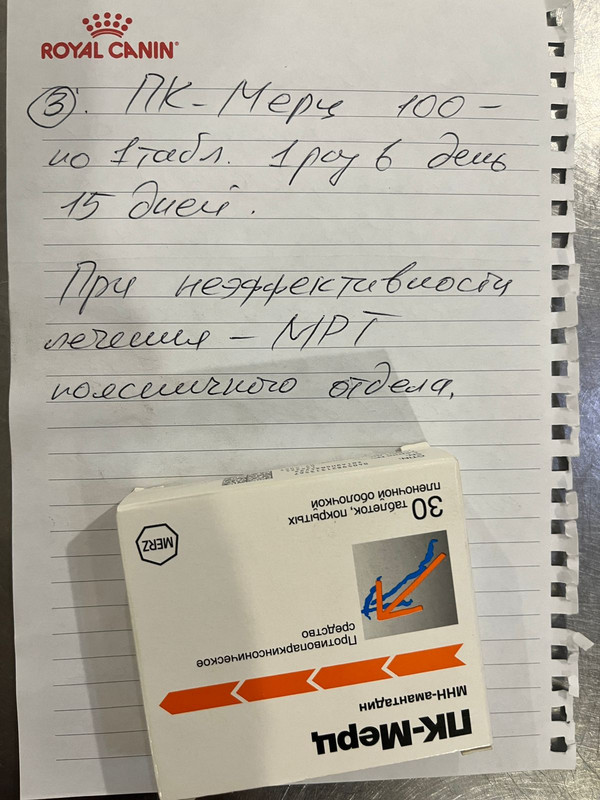 ROYAL CANIN
3. ПК-Мерц 100 –
по 1 табл. 1 раз в день
15 дней.
При неэффективности
лечения – МРТ
поясничного отдела.
ПК-Мерц
МНН-амантадин
Противопаркинсоническое
средство
30 таблеток, покрытых
пленочной оболочкой
MERZ